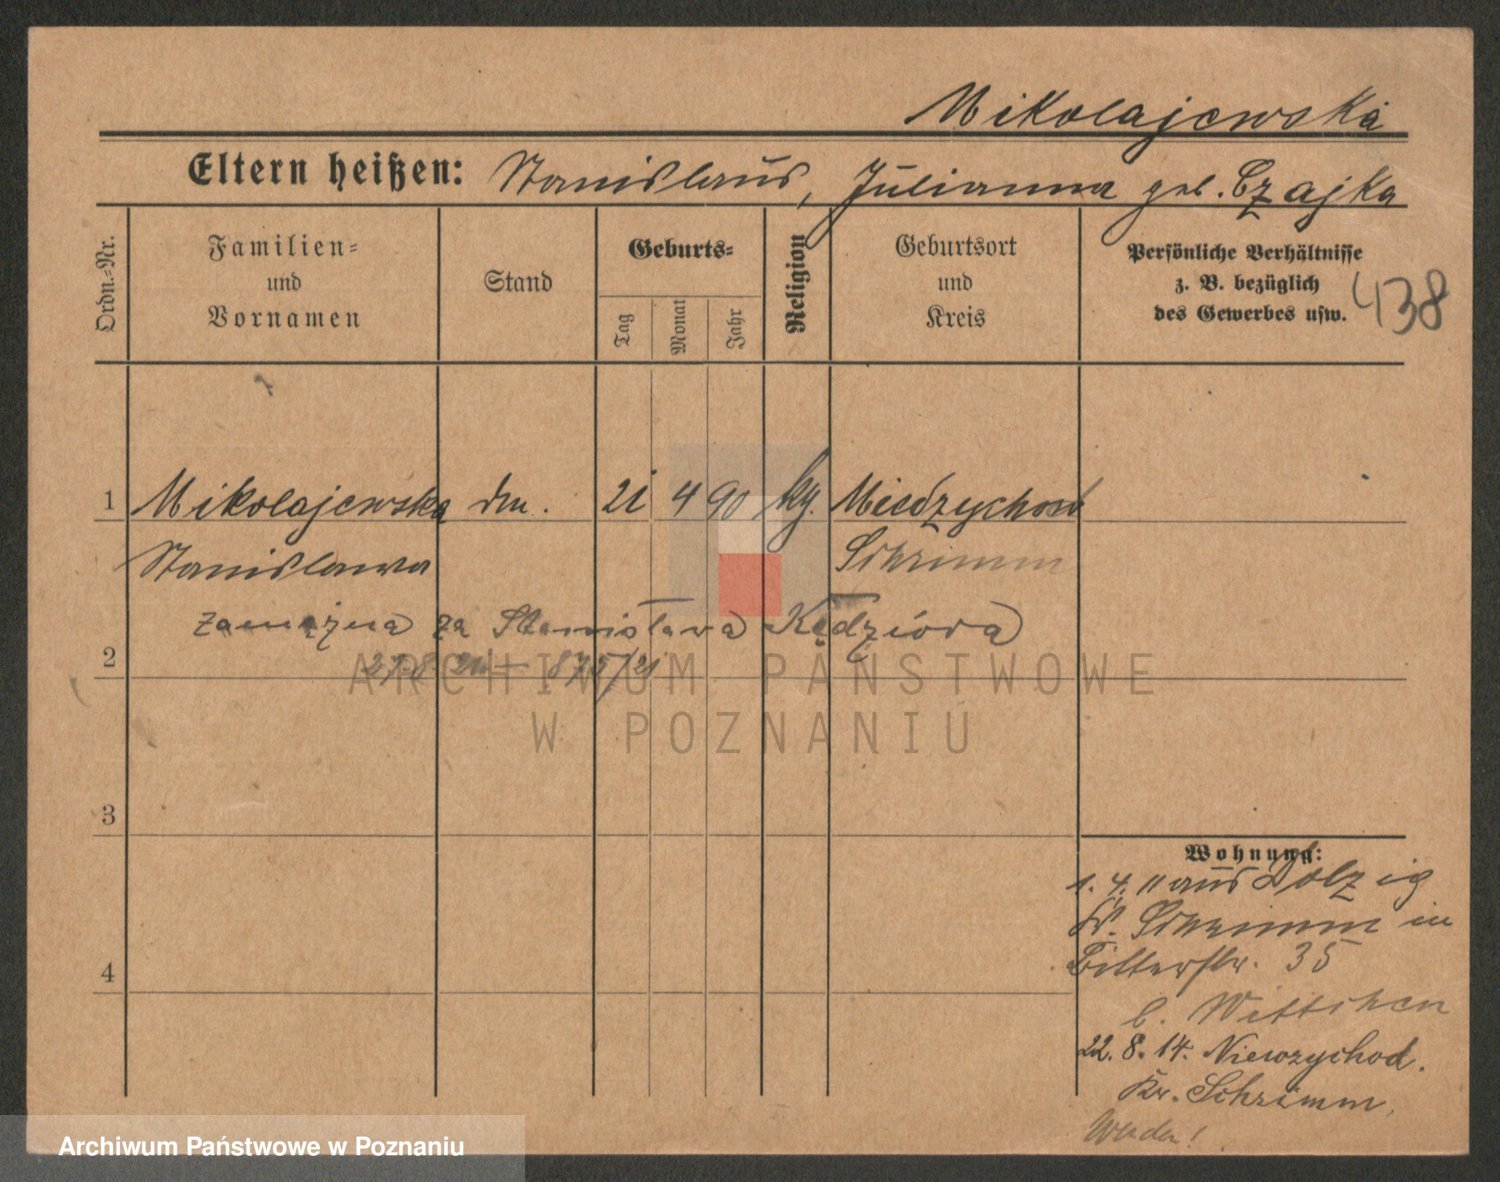 Mikolajewska
Eltern heißen: Stanislaus, Julianna geb. Czajka
Ordn.-Nr.
Familien- und Vornamen
Stand
Geburts-
Tag
Monat
Jahr
Religion
Geburtsort und Kreis
Persönliche Verhältnisse
z. B. bezüglich
des Gewerbes usw.
438
1 Mikolajewska 21 4 90 Miedzychod
Stanislawa Schrimm
zamężna za Stanisława Kędziora
2
3
4
Wohnung:
1. 4. 11 aus Dolzig
Kr. Schrimm in
Bitterstr. 35
b. Wittchen
22. 8. 14. Niewzychod.
Kr. Schrimm,
ARCHIWUM PAŃSTWOWE
W POZNANIU
Archiwum Państwowe w Poznaniu